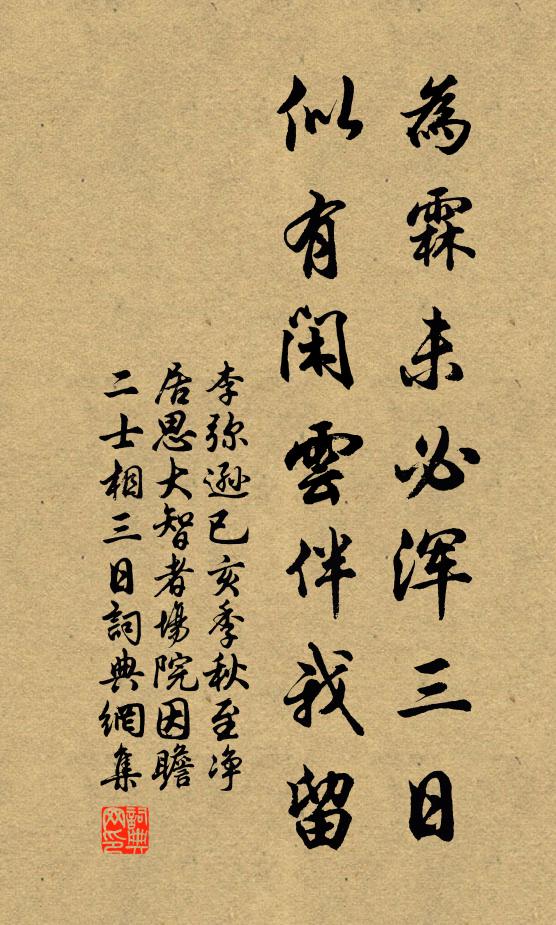 為霖未必浑三日
似有閑雲伴我留
李弥遜已亥季秋至淨
居思大智者場院因瞻
二士相三日詞典網集
詞典
网印